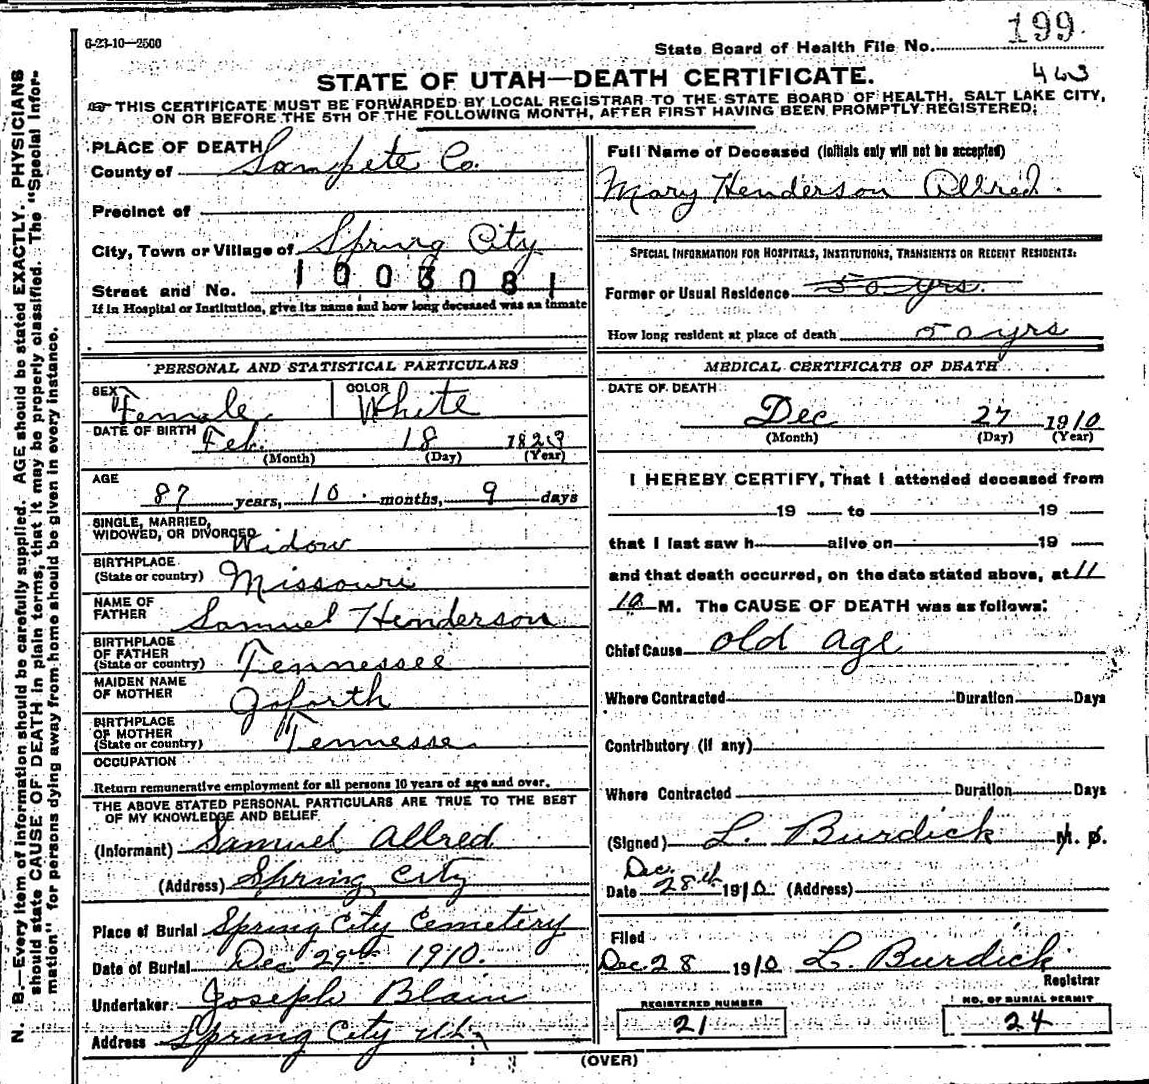 6-23-10—2500
199.
State Board of Health File No.
463
STATE OF UTAH—DEATH CERTIFICATE.
THIS CERTIFICATE MUST BE FORWARDED BY LOCAL REGISTRAR TO THE STATE BOARD OF HEALTH, SALT LAKE CITY,
ON OR BEFORE THE 5TH OF THE FOLLOWING MONTH, AFTER FIRST HAVING BEEN PROMPTLY REGISTERED;
N. B.—Every item of information should be carefully supplied. AGE should be stated EXACTLY. PHYSICIANS
should state CAUSE OF DEATH in plain terms, that it may be properly classified. The "Special Infor-
mation" for persons dying away from home should be given in every instance.
PLACE OF DEATH
County of Sanpete Co.
Precinct of
City, Town or Village of Spring City
1003081
Street and No.
If in Hospital or Institution, give its name and how long deceased was an inmate
PERSONAL AND STATISTICAL PARTICULARS
SEX Female COLOR White
DATE OF BIRTH Feb. 18 1823
(Month) (Day) (Year)
AGE
87 years, 10 months, 9 days
SINGLE, MARRIED,
WIDOWED, OR DIVORCED Widow
BIRTHPLACE
(State or country) Missouri
NAME OF
FATHER Samuel Henderson
BIRTHPLACE
OF FATHER
(State or country) Tennessee
MAIDEN NAME
OF MOTHER Goforth
BIRTHPLACE
OF MOTHER
(State or country) Tennesse
OCCUPATION
Return remunerative employment for all persons 10 years of age and over.
THE ABOVE STATED PERSONAL PARTICULARS ARE TRUE TO THE BEST
OF MY KNOWLEDGE AND BELIEF
(Informant) Samuel Allred
(Address) Spring City
Place of Burial Spring City Cemetery
Date of Burial Dec 29th 1910.
Undertaker Joseph Blain
Address Spring City Ut.
Full Name of Deceased (Initials only will not be accepted)
Mary Henderson Allred.
SPECIAL INFORMATION FOR HOSPITALS, INSTITUTIONS, TRANSIENTS OR RECENT RESIDENTS:
Former or Usual Residence 50 yrs.
How long resident at place of death 50 yrs
MEDICAL CERTIFICATE OF DEATH
DATE OF DEATH
Dec 27 1910
(Month) (Day) (Year)
I HEREBY CERTIFY, That I attended deceased from
19 to 19
that I last saw h alive on 19
and that death occurred, on the date stated above, at 11
M. The CAUSE OF DEATH was as follows:
Chief Cause old age
Where Contracted Duration Days
Contributory (if any)
Where Contracted Duration Days
(Signed) L. Burdick M. D.
Dec.
Date 28th 1910 (Address)
Filed
Dec 28 1910 L. Burdick
Registrar
REGISTERED NUMBER
21
NO. OF BURIAL PERMIT
24
(OVER)